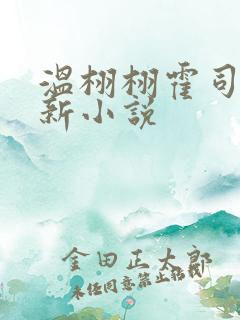 温栩栩霍司
新小説
金田正太郎
未经同意禁止转载